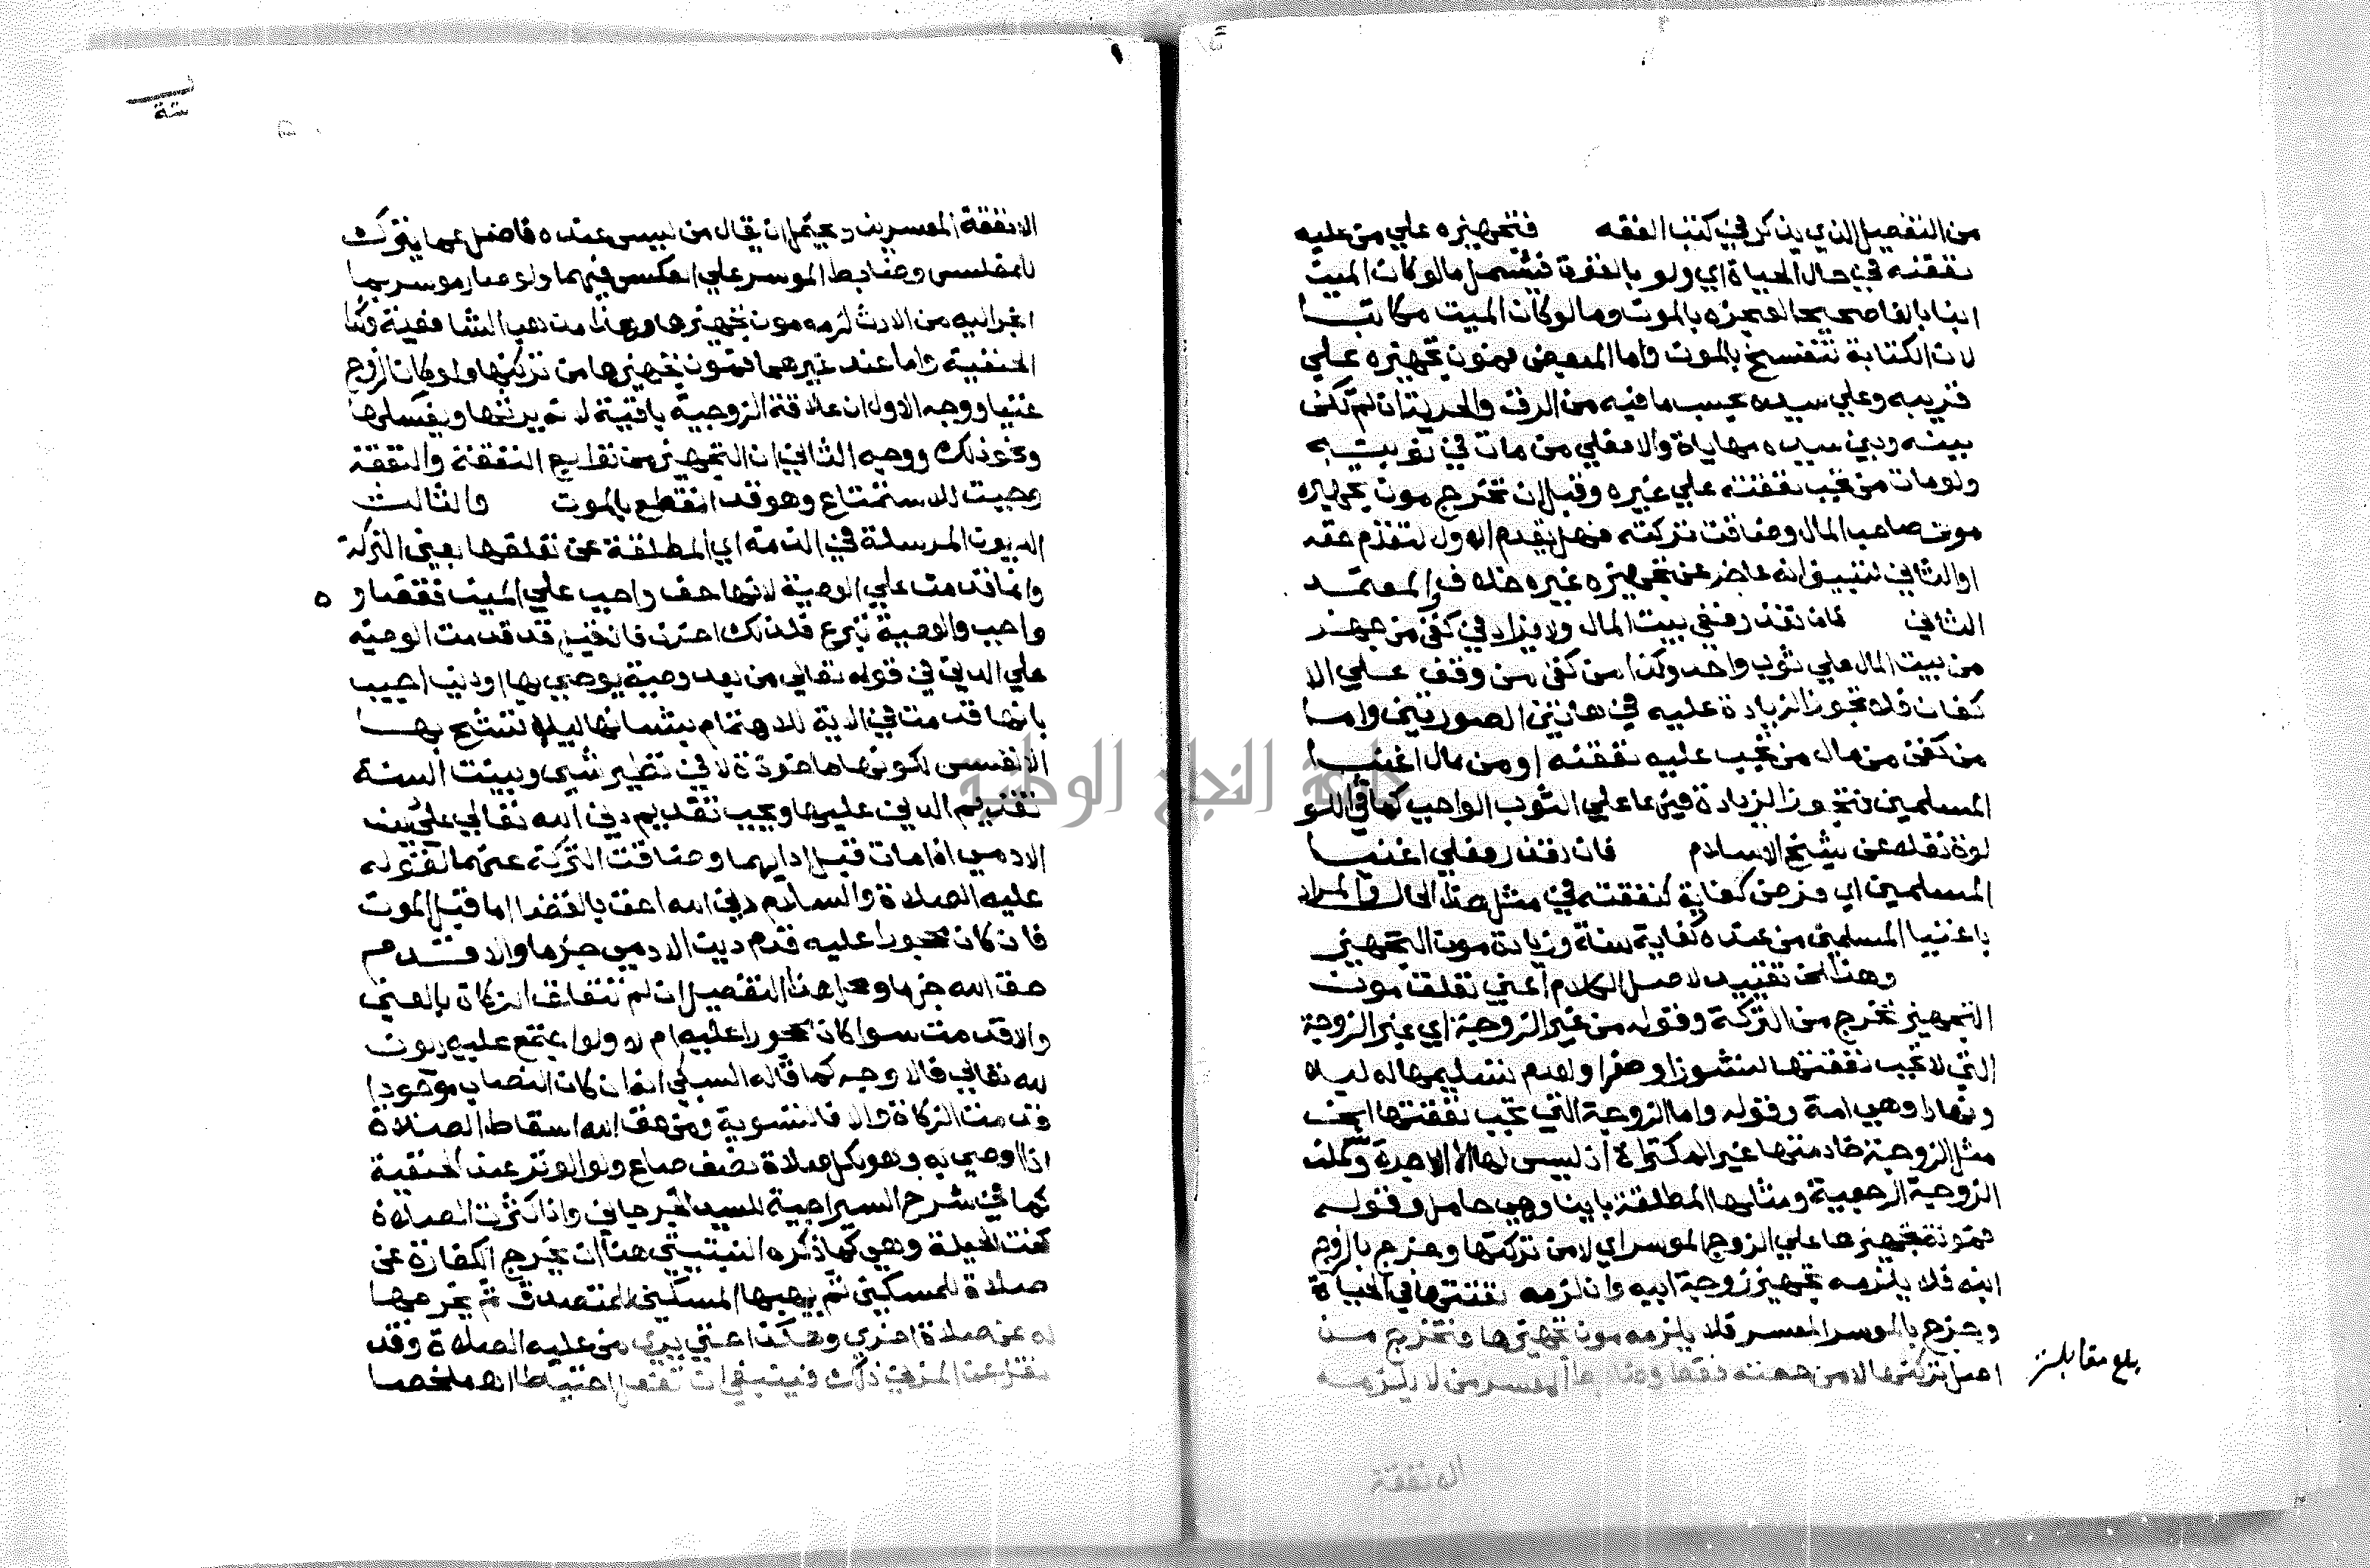 من التفصيل الذي يذكر في كتب الفقه فتجهيزه علي من عليه
نفقته في حال الحياة اي ولو بالقوة فيشمل ما لو كان الميت
ابنا بالغا صحيحا لعجزه بالموت وما لو كان الميت مكاتبا
لان الكتابة تنفسخ بالموت واما المبعض فمون تجهيزه علي
قريبه وعلي سيده بحسب ما فيه من الرق والحرية ان لم تكن
بينه وبين سيده مهاياة والا فعلي من مات في نوبته
ولو مات من تجب نفقته علي غيره وقبل ان تخرج مون تجهيزه
موت صاحب المال وضاقت تركته فهل يقدم الاول لتقدم حقه
او الثاني لتبين انه عاجز عن تجهيزه غيره خلاف والمعتمد
الثاني فان تعذر ففي بيت المال ولا يزاد في كفن من جهز
من بيت المال علي ثوب واحد وكذا من كفن من وقف علي الا
كفان فلا تجوز الزيادة عليه في هاتين الصورتين واما
من كفن من مال من تجب عليه نفقته او من مال اغنيا
المسلمين فتجوز الزيادة فيهما علي الثوب الواحب كما في اللو
لوة نقله عن شيخ الاسلام فان تعذر فعلي اغنيا
المسلمين اي فرض كفاية كنفقته في مثل هذا الحال والمراد
باغنيا المسلمين من عنده كفاية سنة وزيادة مون التجهيز
وهذا تقييد لاصل الكلام اعني تعلق مون
التجهيز تخرج من التركة وقوله من غير الزوجة اي غير الزوجة
التي لا تجب نفقتها لنشوز او صغر او لعدم تسليمها له ليلا
ونهارا وهي امة وقوله واما الزوجة التي تجب نفقتها الخ
مثل الزوجة خادمتها غير المكتراة اذ ليس لها الا الاجرة
الزوجية الرجعية ومثلها المطلقة باينا وهي حامل وقوله
فمونة تجهيزها علي الزوج الموسر اي لا من تركتها وخرج بالزوج
ابنه فلا يلزمه تجهيز زوجة ابيه وان لزمه نفقتها في الحياة
وخرج بالموسر المعسر فلا يلزمه مون تجهيزها وتخرج من
اصل تركتها لا من حصته فقط المعسر من لا يلزمه
بلغ مقابلة
الا نفقة
الا نفقة المعسرين ويحتمل ان يقال من ليس عنده فاضل عما يترك
للمفلس وضابط الموسر علي العكس فيهما ولو صار موسرا بما
انجر اليه من الارث لزمه مون تجهيزها وهذا مذهب الشافعية وكذا
الحنفية واما عند غيرهما فمون تجهيزها من تركتها ولو كان الزوج
غنيا ووجه الاول ان علاقة الزوجية باقية لانه يرثها ويغسلها
ونحو ذلك ووجه الثاني ان التجهيز من توابع النفقة والنفقة
وجبت للاستمتاع وهو قد انقطع بالموت والثالث
الديون المرسلة في الذمة اي المطلقة عن تعلقها بعين التركة
وانما قدمت علي الوصية لانها حق واجب علي الميت
واجب والوصية تبرع فلذلك اخرت فان قيل قد قدمت الوصية
علي الدين في قوله تعالي من بعد وصية يوصي بها او دين اجيب
بانها قدمت في الاية للاهتمام بشانها ليلا تشح بها
الانفس لكونها ماخوذة لا في نظير شي وبينت السنة
تقديم الدين عليها ويجب تقديم دين الله تعالي علي دين
الادمي اذا مات قبل ادايهما وضاقت التركة عنهما لقوله
عليه الصلاة والسلام دين الله احق بالقضا اما قبل الموت
فان كان محجورا عليه قدم دين الادمي جزما والا قدم
حق الله جزما ومحل هذا التفصيل ان لم تتعلق الزكاة بالعين
والا قدمت سوا كان محجورا عليه ام لا ولو اجتمع عليه ديون
لله تعالي فالاوجه كما قاله السبكي انه ان كان النصاب موجودا
قدمت الزكاة والا فالتسوية ومن حق الله اسقاط الصلاة
اذا اوصي به وهو لكل صلاة نصف صاع ولو الوتر عند الحنفية
كما في شرح السيراجية للسيد الجرجاني واذا كثرت الصلاة
كفت الحيلة وهي كما ذكره هنا ان يخرج الكفارة عن
صلاة للمسكين ثم يهبها المسكين للمتصدق ثم يخرجها
له عن صلاة اخري وهكذا حتي يبري من عليه الصلاة وقد
نقل عن المزني ذلك فينبغي ان تفعل احتياطا اه ملخصا
جامعة النجاح الوطنية